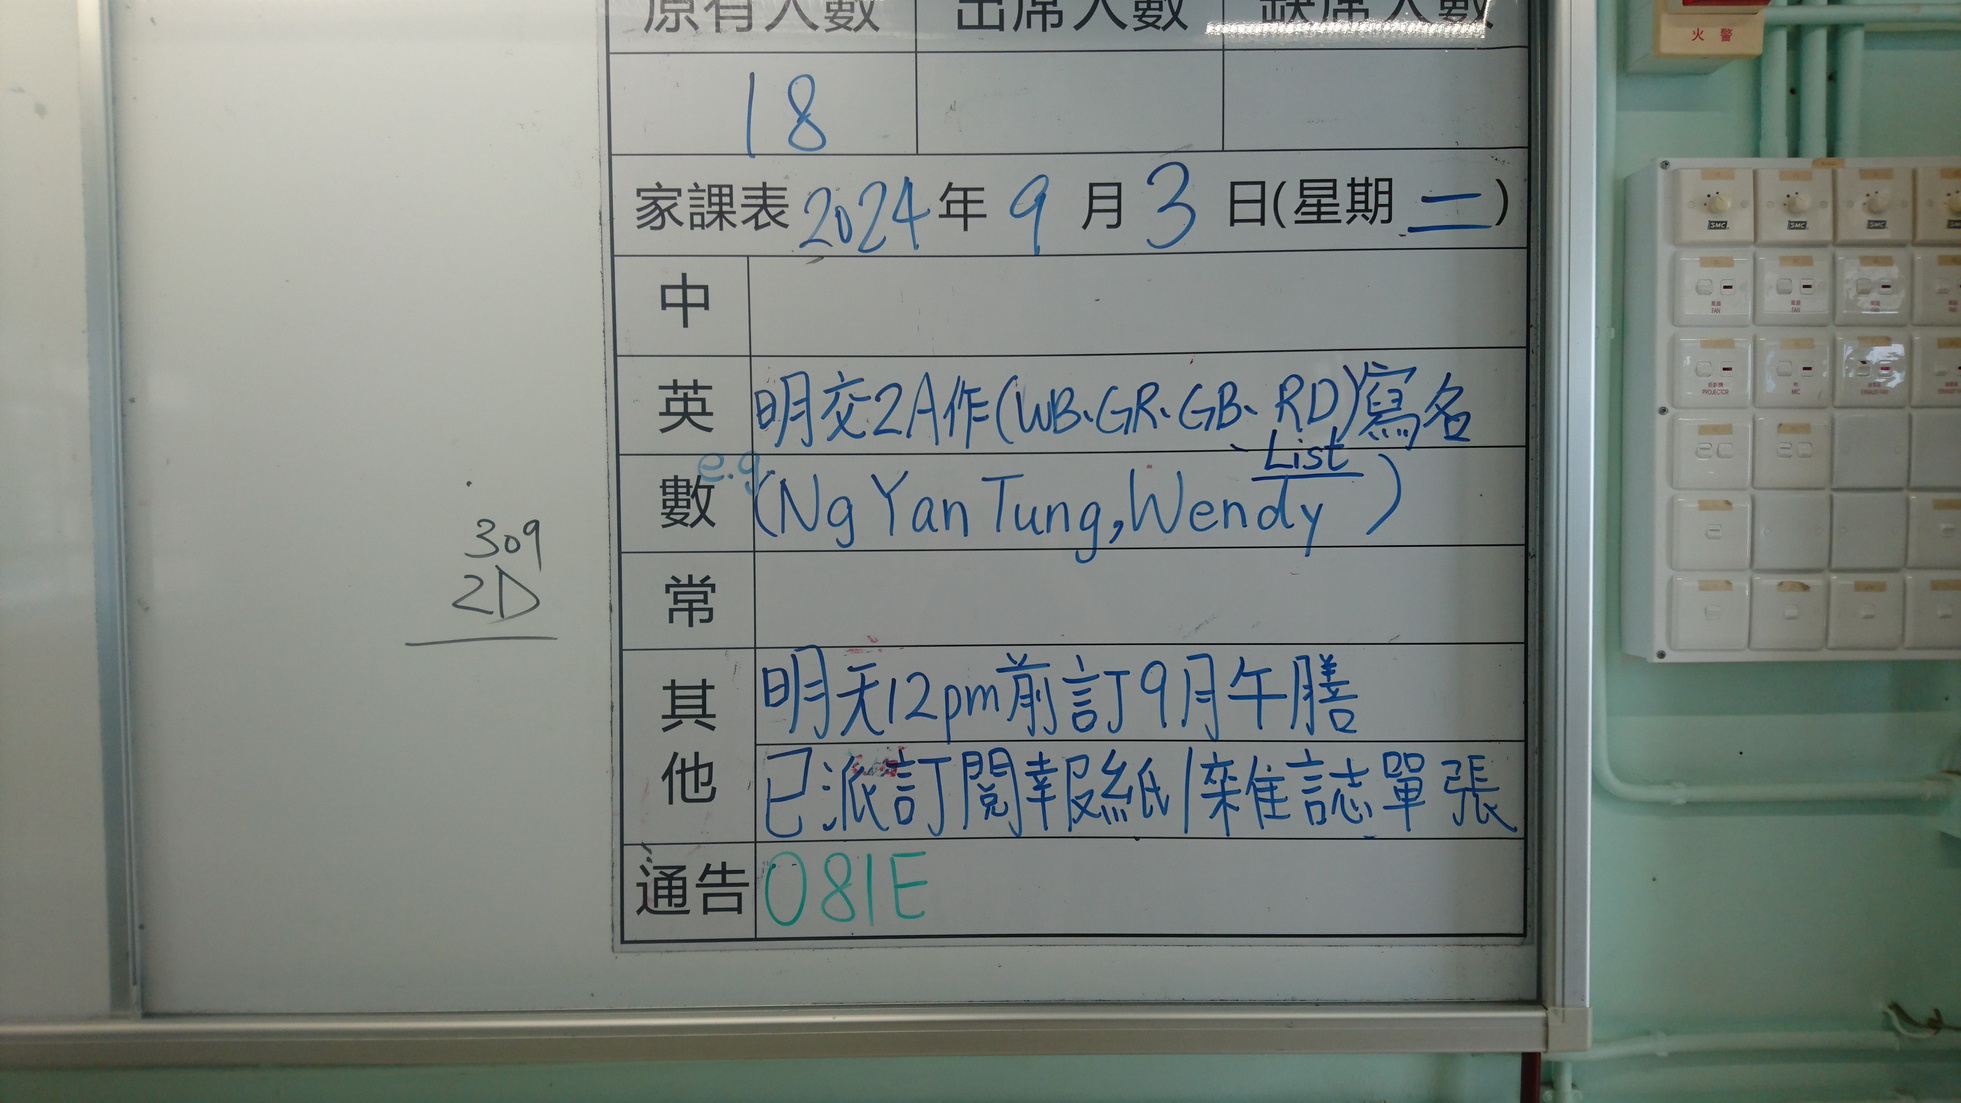 原有人數 出席人數 缺席人數
18
家課表 2024 年 9 月 3 日(星期 二)
中
英 明交2A作(WB、GR、GB、RD)寫名
List
e.g.
數 (Ng Yan Tung, Wendy )
常
其他
明天12pm前訂9月午膳
已派訂閱報紙/雜誌單張
通告 081E
309
2D
火警
SMC SMC SMC
風扇 風扇
FAN FAN
PROJECTOR MIC